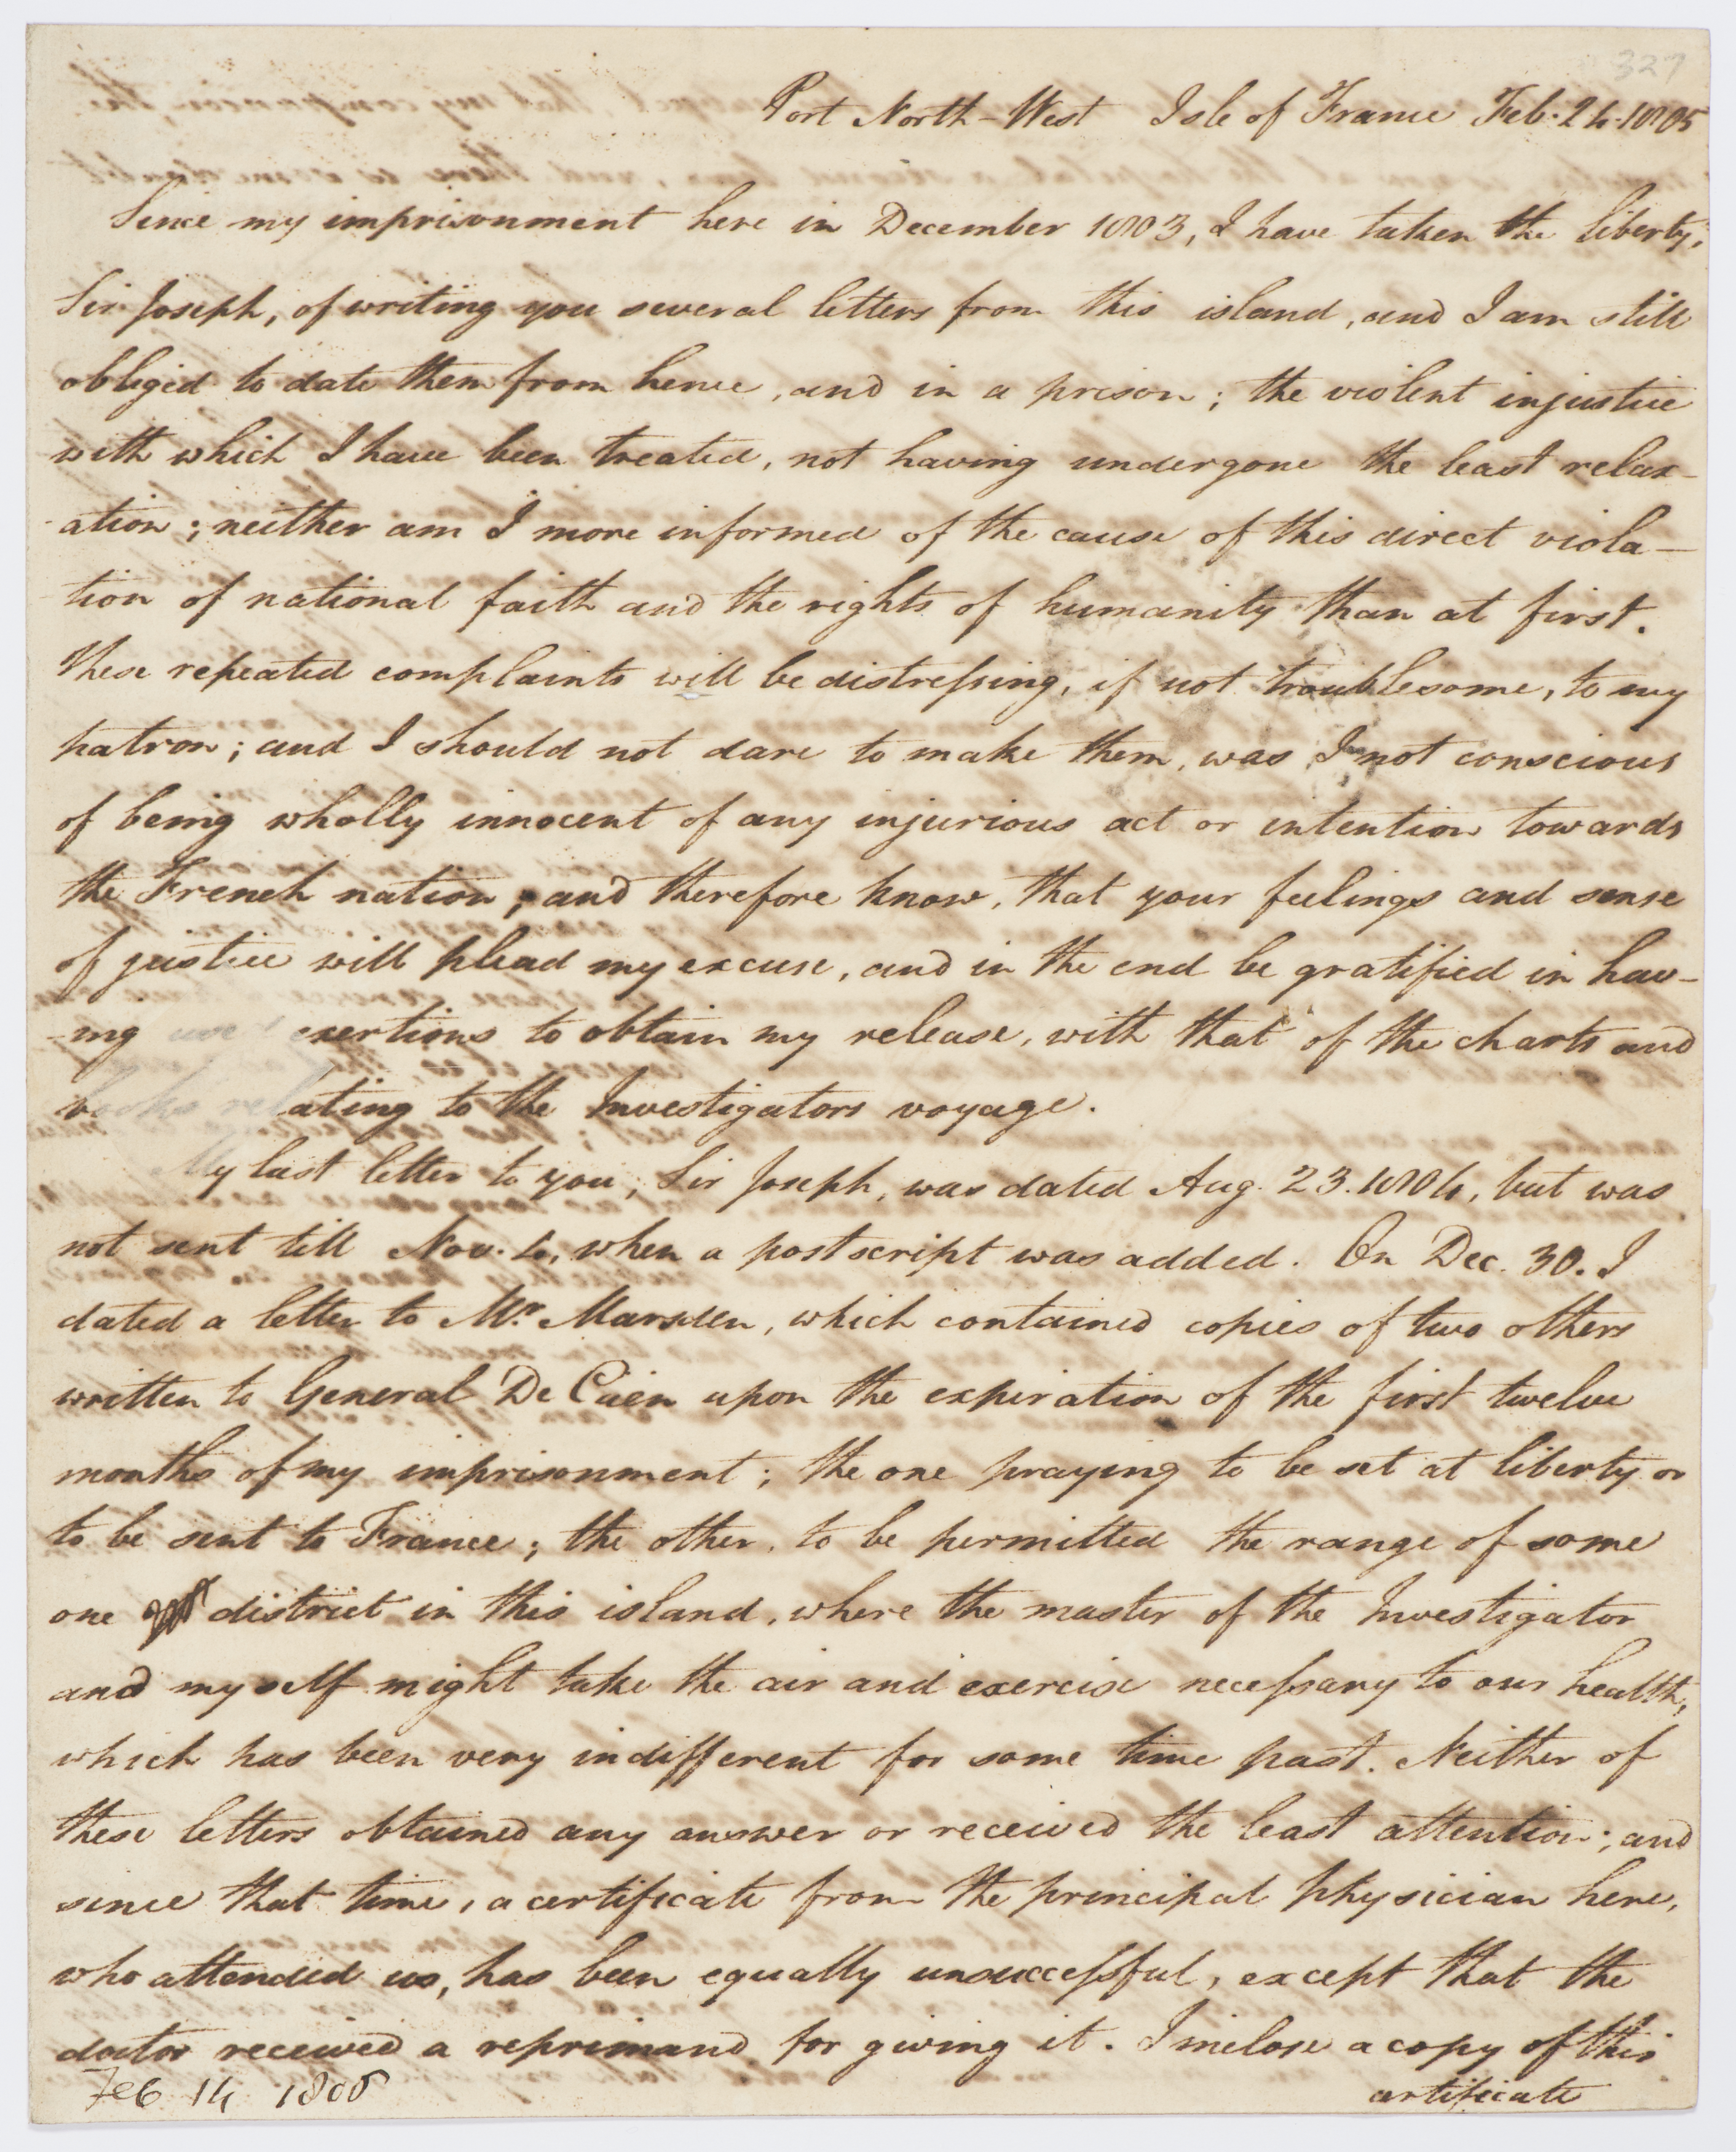 327
Port North-West Isle of France Feb. 24. 1805
Since my imprisonment here in December 1803, I have taken the liberty,
Sir Joseph, of writing you several letters from this island, and I am still
obliged to date them from hence, and in a prison; the violent injustice
with which I have been treated, not having undergone the least relax-
-ation; neither am I more informed of the cause of this direct viola-
tion of national faith and the rights of humanity than at first.
These repeated complaints will be distressing, if not troublesome, to my
patron; and I should not dare to make them, was I not conscious
of being wholly innocent of any injurious act or intention towards
the French nation; and therefore know, that your feelings and sense
of justice will plead my excuse, and in the end be gratified in hav-
-ing used exertions to obtain my release, with that of the charts and
books relating to the Investigators voyage.
My last letter to you, Sir Joseph, was dated Aug. 23. 1804, but was
not sent till Nov. 4, when a postscript was added. On Dec. 30. I
dated a letter to Mr. Marsden, which contained copies of two others
written to General De Caen upon the expiration of the first twelve
months of my imprisonment; the one praying to be set at liberty or
to be sent to France; the other, to be permitted the range of some
one district in this island, where the master of the Investigator
and myself might take the air and exercise necessary to our health,
which has been very indifferent for some time past. Neither of
these letters obtained any answer or received the least attention; and
since that time, a certificate from the principal physician here,
who attended us, has been equally unsuccessful, except that the
doctor received a reprimand for giving it. I inclose a copy of this
certificate
Feb 14 1805